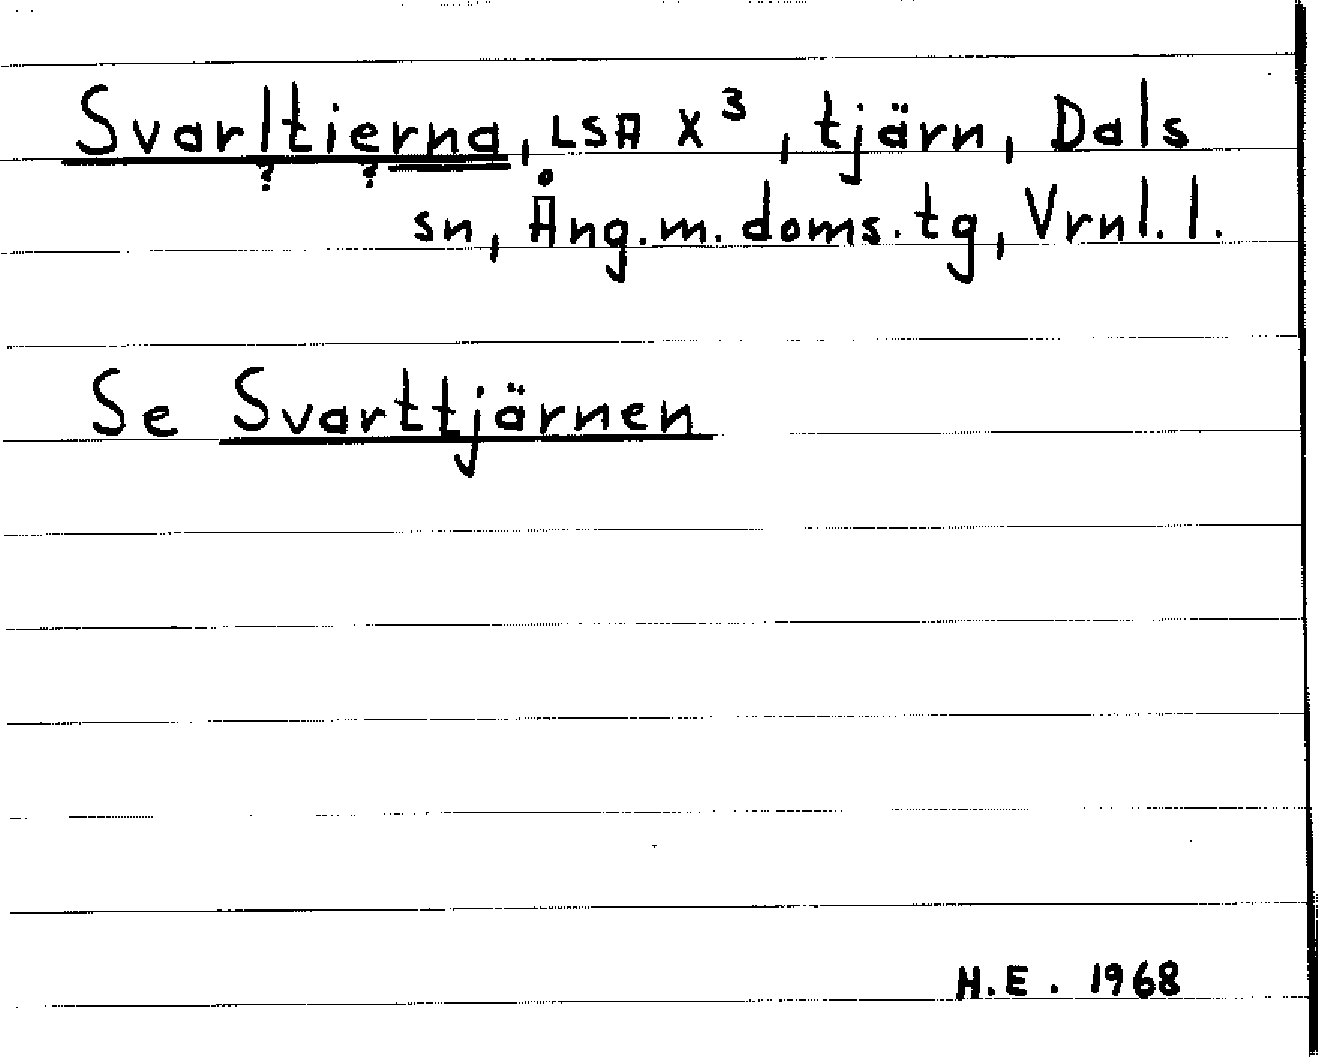 Svarltierna, LSA X³, tjärn, Dals
? ?
sn, Ång.m. doms.tg, Vrnl. l.
Se Svarttjärnen
H.E. 1968